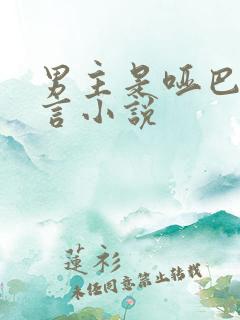 男主是哑巴
言小说
莲衫
未经同意禁止转载